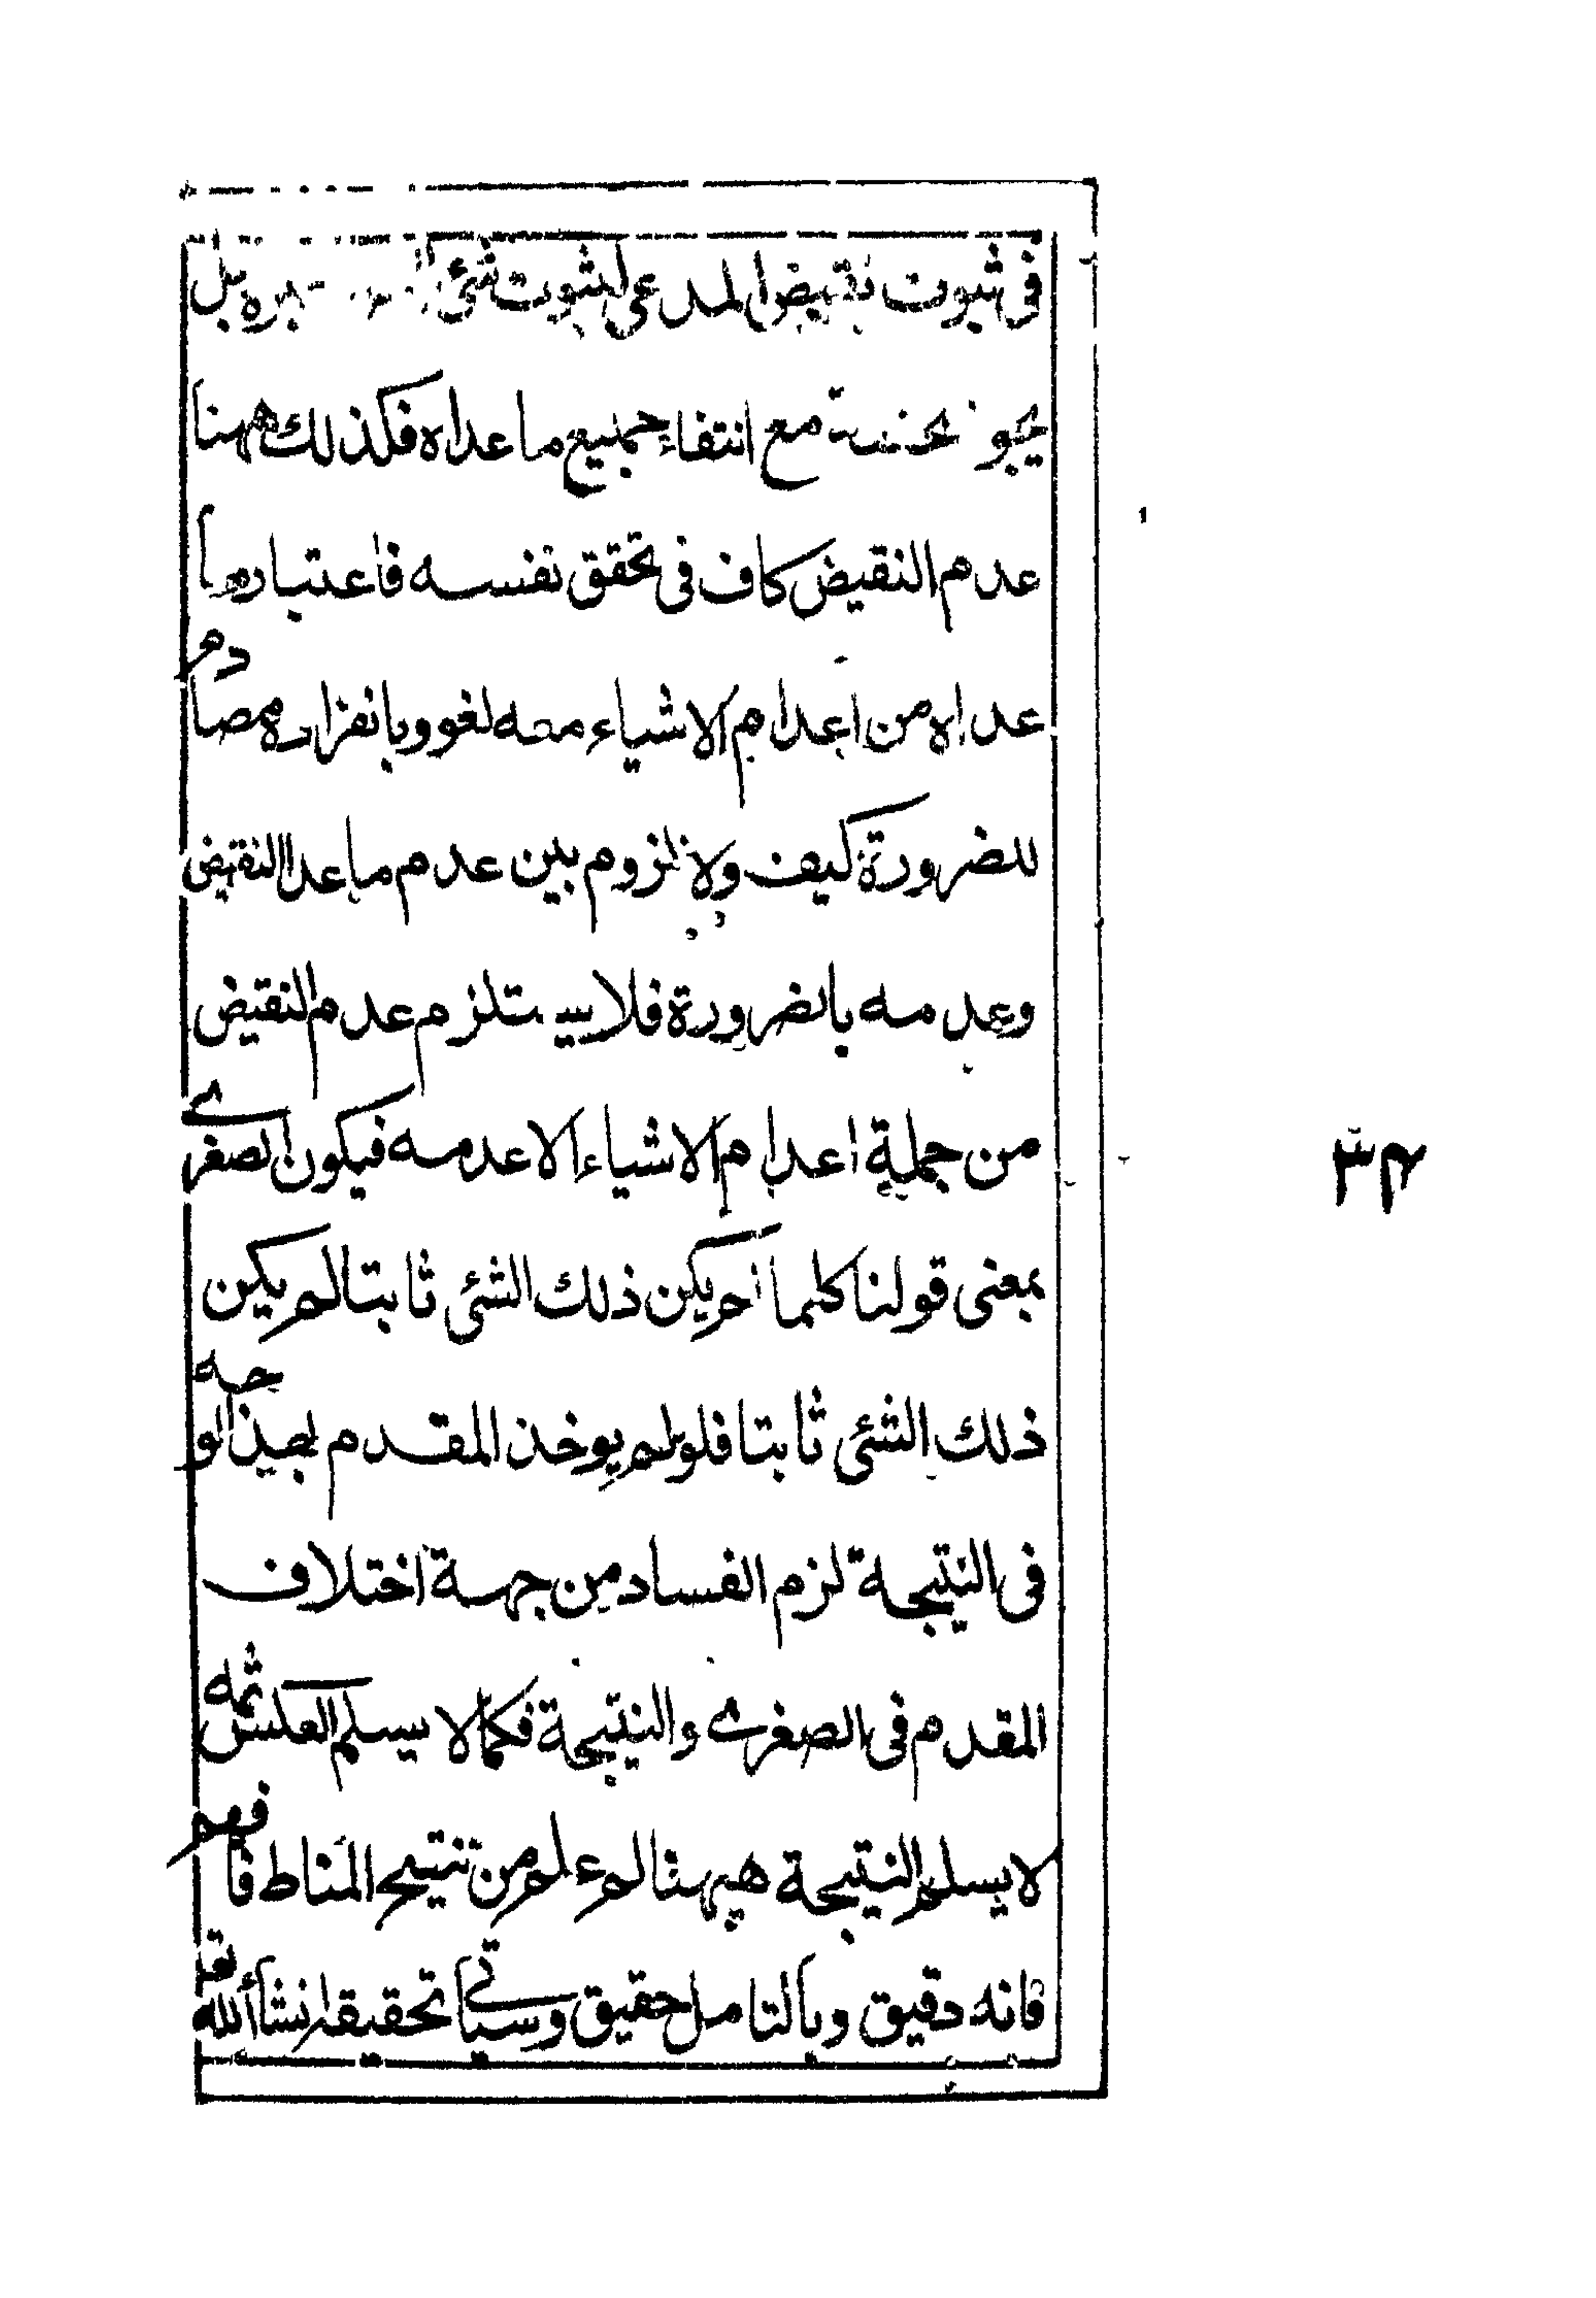 فى ثبوت نقيض المدعى لثبوت شئ بل
مع انتفاء جميع ما عداه فكذلك ههنا
عدم النقيض كاف فى تحقق نفسه فاعتبار ما
عداه من اعدام الاشياء معه لغو وبانفراده مصادم
للضرورة كيف ولا لزوم بين عدم ما عدا النقيض
وعدمه بالضرورة فلا يستلزم عدم النقيض
من جملة اعدام الاشياء الا عدمه فيكون الصغرى
بمعنى قولنا كلما لم يكن ذلك الشئ ثابتا لم يكن
ذلك الشئ ثابتا فلو لم يوخذ المقدم بهذا الوجه
فى النتيجة لزم الفساد من جهة اختلاف
المقدم فى الصغرى والنتيجة فكما لا يسلم العكس ثمه
لا يسلم النتيجة ههنا لم علم من تنقيح المناط فافهم
فانه دقيق وبالتامل حقيق وسياتى تحقيقه انشاء الله تعا